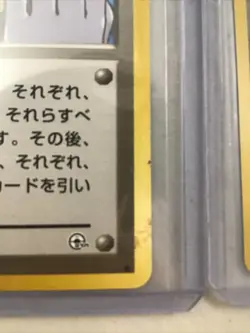 それぞれ、
それらすべ
す。その後、
、それぞれ、
カードを引い